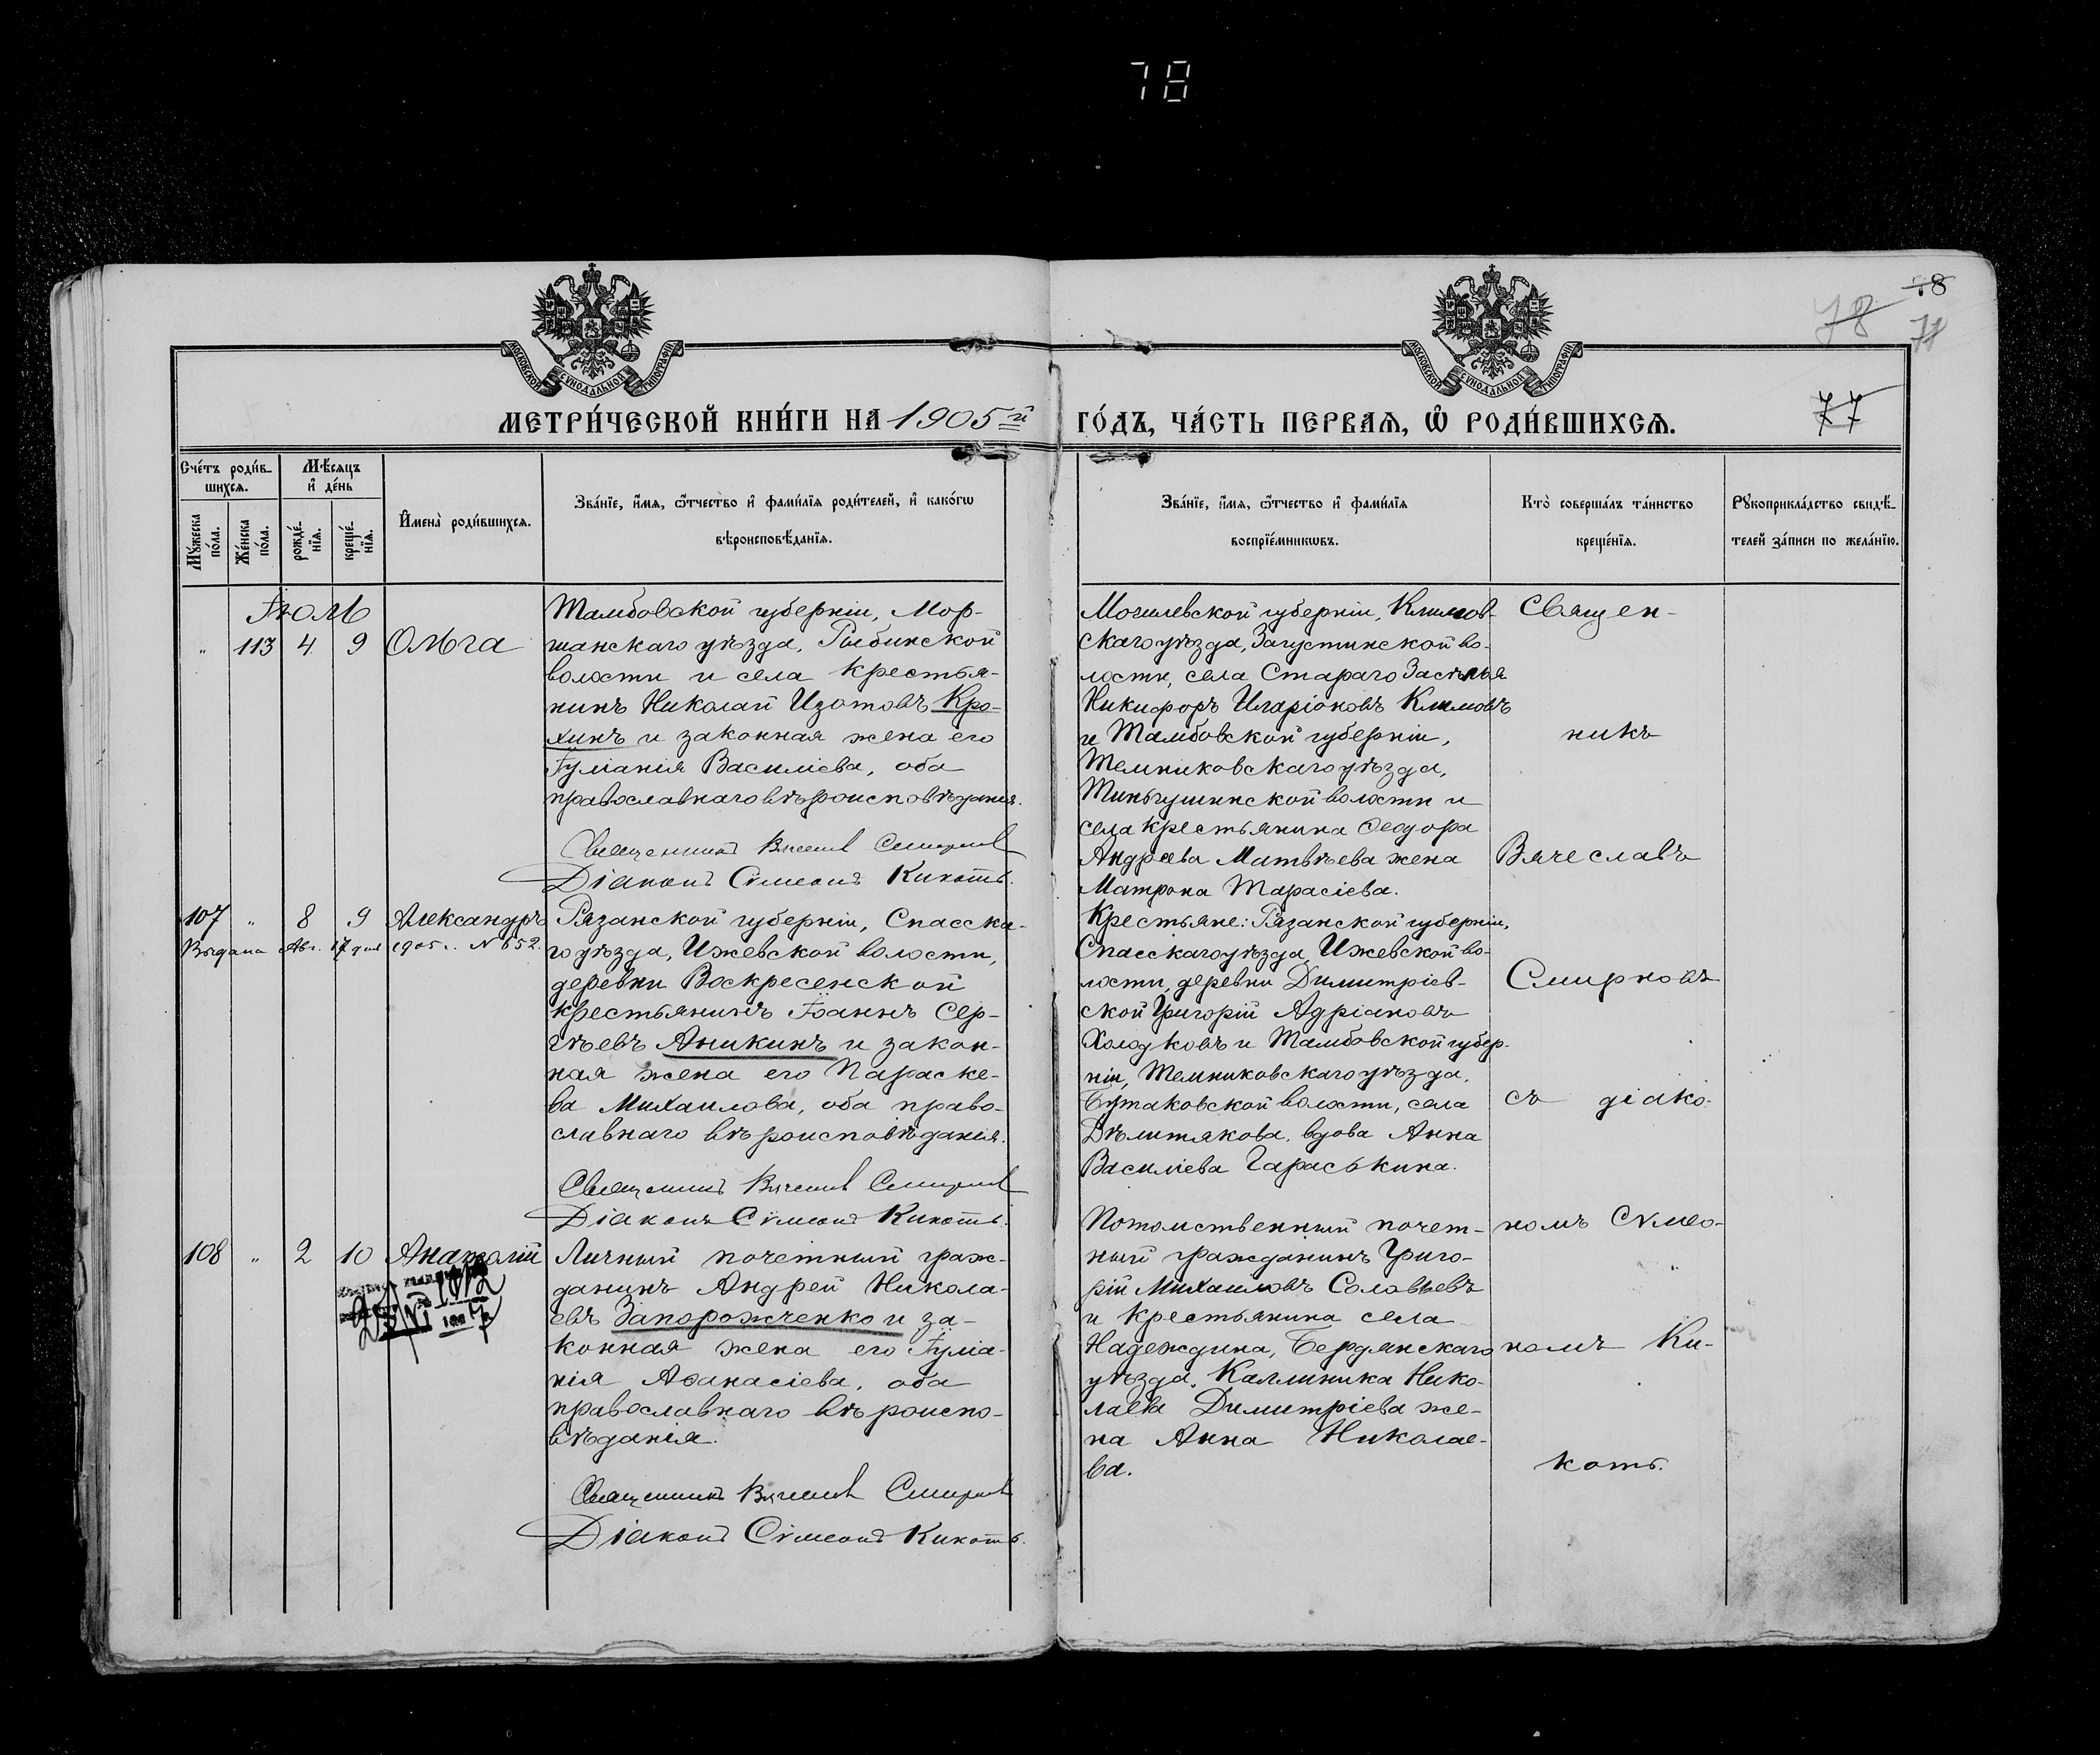 78
78
78
МОСКОВСКОЙ СѴНОДАЛЬНОЙ ТИПОГРАФІИ
МОСКОВСКОЙ СѴНОДАЛЬНОЙ ТИПОГРАФІИ
МЕТРИ́ЧЕСКОЙ КНИ́ГИ НА 1905й ГО́ДЪ, ЧА́СТЬ ПЕРВАѦ, Ѽ РОДИ́ВШИХСѦ.
77
Сче́тъ роди́в-
шихсѧ.
Мѣ́сяцъ
и҆ де́нь
Мꙋ́жеска
по́ла.
Же́нска
по́ла.
рожде́-
нїѧ.
креще́-
нїѧ.
И҆мена̀ роди́вшихсѧ.
Зва́нїе, и҆́мѧ, ѻ҆́тчество и҆ фами́лїѧ роди́телей, и҆ како́гѡ
вѣроисповѣ́данїѧ.
Зва́нїе, и҆́мѧ, ѻ҆́тчество и҆ фами́лїѧ
воспрїе́мникѡвъ.
Кто̀ соверша́лъ та́инство
креще́нїѧ.
Рꙋкоприкла́дство свидѣ́-
телей за́писи по жела́нїю.
Іюль
" 113 4 9 Ольга
Тамбовской губерніи, Мор-
шанскаго уѣзда, Рыбинской
волости и села крестья-
нинъ Николай Изотовъ Кро-
хинъ и законная жена его
Іуліанія Василіева, оба
православнаго вѣроисповѣданія.
Священникъ Вячеслав Смирнов
Діаконъ Сѵмеонъ Кикоть.
Могилевской губерніи, Климов-
скаго уѣзда, Загустинской во-
лости, села Стараго Застѣнья
Никифоръ Иларіоновъ Климовъ
и Тамбовской губерніи,
Темниковскаго уѣзда,
села крестьянина Ѳеодора
Андреева Матвѣева жена
Матрона Тарасіева.
107 " 8 9 Александръ
Выдана Авг. 17 дня 1905 г. N 652.
Рязанской губерніи, Спасска-
го уѣзда, Ижевской волости,
деревни Воскресенской
крестьянинъ Іоаннъ Сер-
гѣевъ Аникинъ и закон-
ная жена его Параске-
ва Михаилова, оба право-
славнаго вѣроисповѣданія.
Священникъ Вячеслав Смирнов
Діаконъ Сѵмеонъ Кикоть.
Крестьяне: Рязанской губерніи,
Спасскаго уѣзда, Ижевской во-
лости, деревни Димитріев-
ской Григорій Адріановъ
Холодковъ и Тамбовской губер-
ніи, Темниковскаго уѣзда,
Бутаковской волости, села
вдова Анна
Василіева Гараськина.
108 " 2 10 Анатолій
Личный почетный граж-
данинъ Андрей Никола-
евъ Запорожченко и за-
конная жена его Іуліа-
нія Аѳанасіева, оба
православнаго вѣроиспо-
вѣданія.
Священникъ Вячеслав Смирнов
Діаконъ Сѵмеонъ Кикоть.
Потомственный почет-
ный гражданинъ Григо-
рій Михаиловъ Соловьевъ
и крестьянина села
Надеждина, Бердянскаго
уѣзда, Каллиника Нико-
лаева Димитріева же-
на Анна Николае-
ва.
Священ-
никъ
Вячеславъ
Смирновъ
съ діако-
номъ Сѵмео-
номъ Ки-
коть.